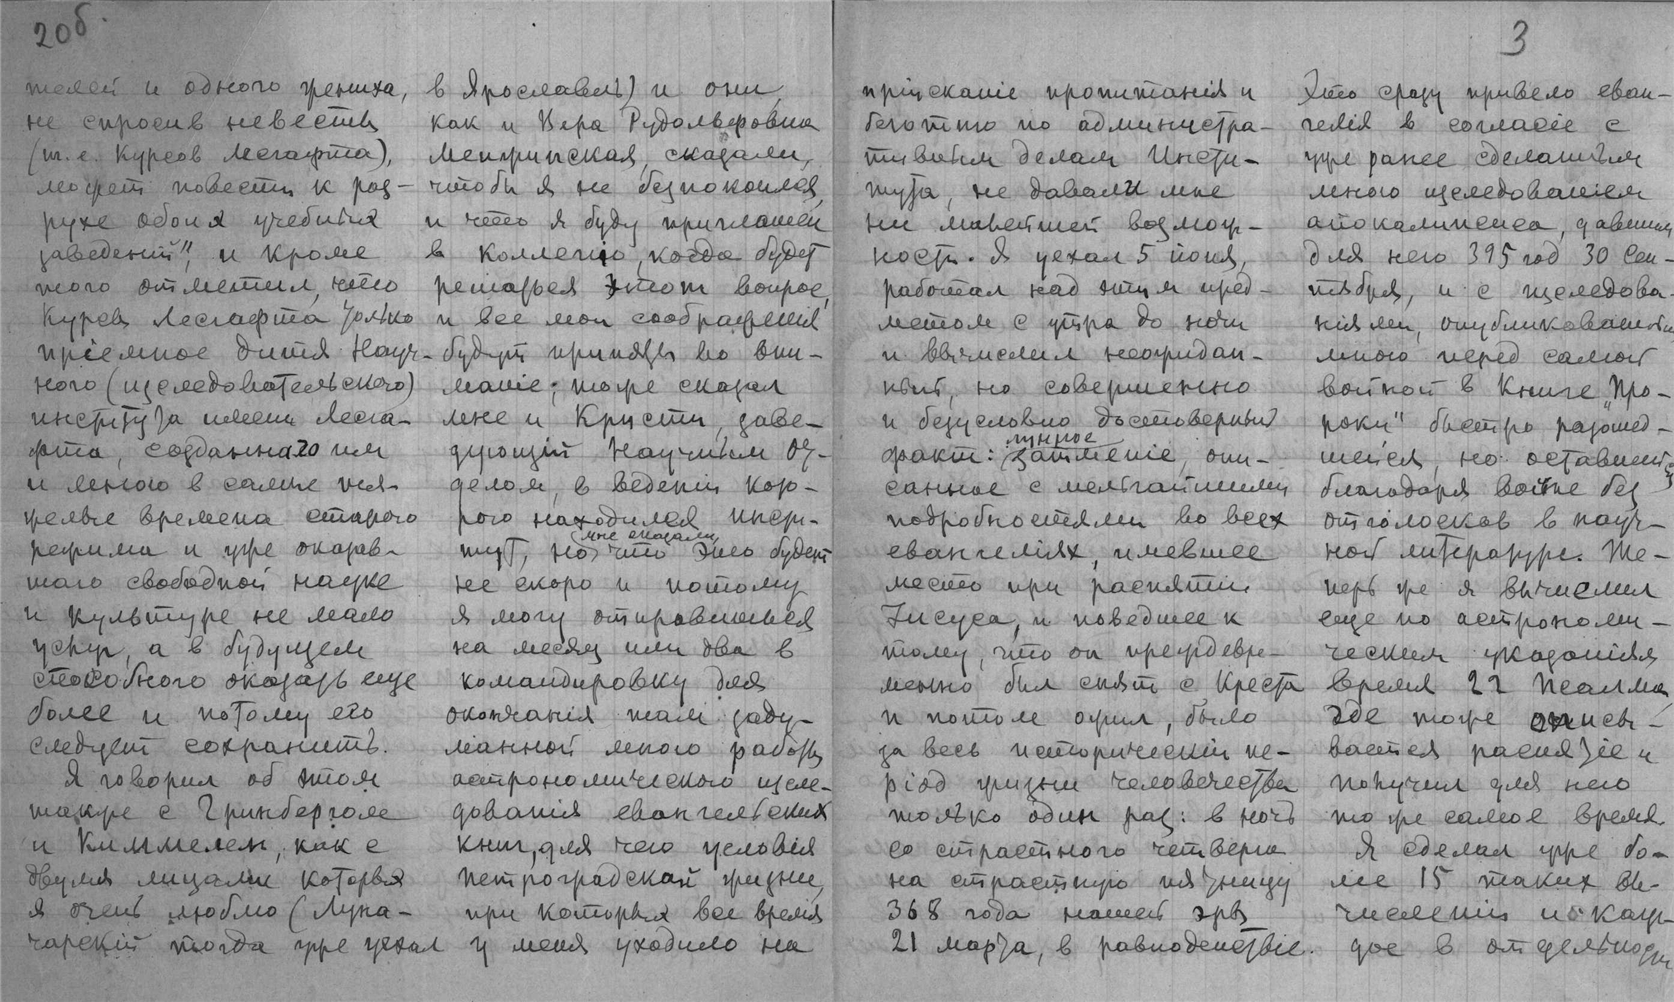 20б
телей и одного жениха,
не спросив невесты
(т. е. Курсов Лесгафта),
может повести к раз-
рухе обоих учебных
заведений", и кроме
того отметил, что
Курсы Лесгафта только
приемное дитя Науч-
ного (изследовательского)
института имени Лесга-
фта, созданнаго им
и мною в самые тя-
желые времена старого
режима и уже оказав-
шаго свободной науке
и культуре не мало
услуг, а в будущем
способного оказать еще
более и потому его
следует сохранить.
Я говорил об этом
также с Гринбергом
и Киммелем, как с
двумя лицами которых
я очень люблю (Луна-
чарский тогда уже уехал
в Ярославль) и они,
как и Вера Рудольфовна
Менжинская, сказали,
чтобы я не безпокоился,
и что я буду приглашен
в коллегію, когда будет
решаться этот вопрос,
и все мои соображенія
будут приняты во вни-
маніе; тоже сказал
мне и Кристи, заве-
дующій Научным От-
делом, в веденіи кото-
рого находился Инсти-
тут, но мне сказали, что это будет
не скоро и потому
я могу отправиться
на месяц или два в
командировку для
окончанія там заду-
манной мною работы
астрономического изсле-
дованія евангельских
книг, для чего условія
Петроградской жизни,
при которых все время
у меня уходило на
3
пріисканіе пропитанія и
беготню по администра-
тивным делам Инсти-
тута, не давали мне
ни малейшей возмож-
ности. Я уехал 5 іюня,
работал над этим пред-
метом с утра до ночи
и вычислил неожидан-
ный, но совершенно
и безусловно достоверный
факт: лунное затменіе, опи-
санное с мельчайшими
подробностями во всех
евангеліях, имевшее
место при распятіи
Іисуса, и поведшее к
тому, что он преждевре-
менно был снят с Креста
и потом ожил, было
за весь историческій пе-
ріод жизни человечества
только один раз: в ночь
со страстного четверга
на страстную пятницу
368 года нашей эры
21 марта, в равноденствіе.
Это сразу привело еван-
гелія в согласіе с
уже ранее сделанным
мною изследованіем
апокалипсиса, давшим
для него 395 год 30 Сен-
тября, и с изследова-
ніями, опубликованными
мною перед самой
войной в Книге „Про-
роки" быстро разошед-
шейся, но оставшейся
благодаря войне без
отголосков в науч-
ной литературе. Те-
перь же я вычислил
еще по астрономи-
ческим указаніям
время 22 псалма,
где тоже описы-
вается распятіе и
получил для него
то же самое время.
Я сделал уже бо-
лее 15 таких вы-
числений и каж-
дое в отдельности